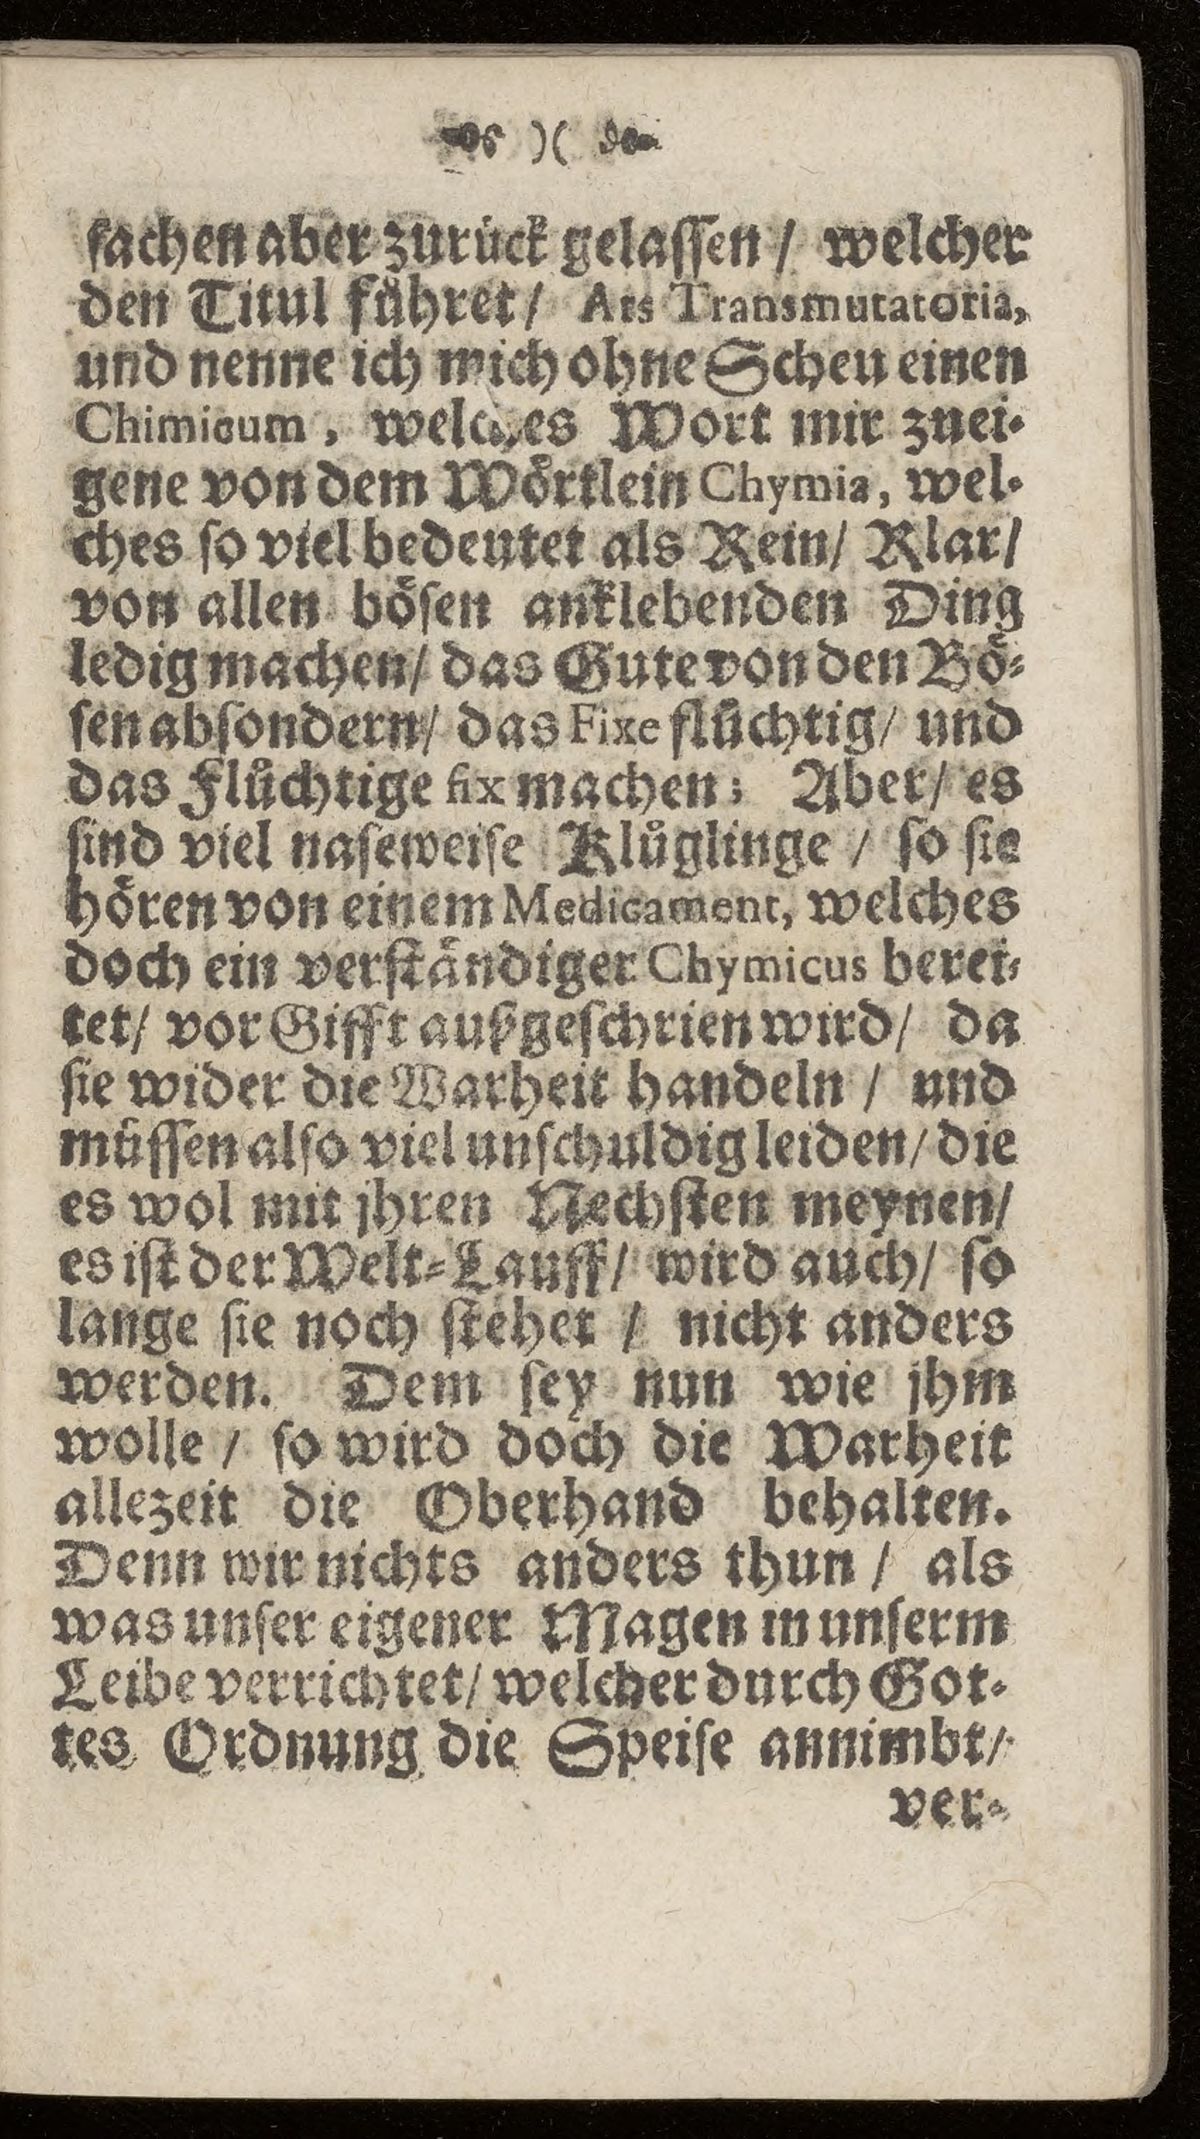 )(
sachen aber zurück gelassen / welcher
den Titul führet / Ars Transmutatoria,
und nenne ich mich ohne Scheu einen
Chimicum, welches Wort mir zuei-
gene von dem Wörtlein Chymia, wel-
ches so viel bedeutet als Rein / Klar /
von allen bösen anklebenden Ding
ledig machen / das Gute von den Bö-
sen absondern / das Fixe flüchtig / und
das Flüchtige fix machen; Aber / es
sind viel naseweise Klüglinge / so sie
hören von einem Medicament, welches
doch ein verständiger Chymicus berei-
tet / vor Gifft außgeschrien wird / da
sie wider die Warheit handeln / und
müssen also viel unschuldig leiden / die
es wol mit jhren Nechsten meynen /
es ist der Welt-Lauff / wird auch / so
lange sie noch stehet / nicht anders
werden. Dem sey nun wie jhm
wolle / so wird doch die Warheit
allezeit die Oberhand behalten.
Denn wir nichts anders thun / als
was unser eigener Magen in unserm
Leibe verrichtet / welcher durch Got-
tes Ordnung die Speise annimbt /
ver-